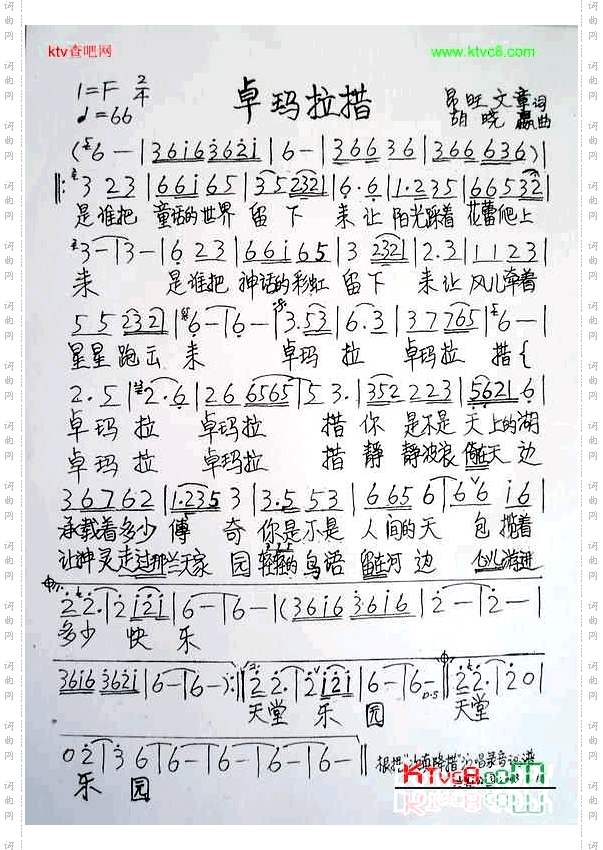 ktv查吧网
www.ktvc8.com
1=F 2/4
♩=66
卓玛拉措
昂旺文章词
胡晓 嬴曲
(6 — | 36i6 362i | 6 — | 366 36 | 366 636) |
3 23 | 66i 65 | 35 2321 | 6· 6 | 1·235 | 665 32 |
是谁把 童话的世界 留 下 来 让 阳光踩着 花蕾爬上
3 — | 3 — | 6 23 | 66i 65 | 3 2321 | 2.3 | 11 23 |
来 是谁把 神话的彩虹 留 下 来 让 风儿牵着
55 2321 | 6 — | 6 — | 3.53 | 6.3 | 37 765 | 6 — |
星星 跑云 来 卓玛 拉 卓玛拉 措{
2.5 | 2.6 | 26 6565 | 5 3. | 352 223 | 5621 6 |
卓玛 拉 卓玛拉 措 你 是不是 天上的湖
卓玛 拉 卓玛拉 措 静 静波浪 倚在天 边
36 762 | 1.235 3 | 3.5 53 | 665 6 | 6 6 i6 |
承载着多少 傳 奇 你是不是 人间的天 包 揽着
让神灵走过那兰天家 园 轻轻的鸟语 留在河 边 心儿游进
22. | 2 i2i | 6 — | 6 — | (36i6 36i6 | 2 — | 2 — |
多少 快 乐
36i6 362i | 6 — | 6 —) :‖ 22. | 2 i2i | 6 — | 6 — D.S ‖ 22. | 2 0 |
天堂 乐 园 天堂
0 2 | 3 6 | 6 — | 6 — | 6 — | 6 — | 6 — ‖
乐 园
KTvc8.com